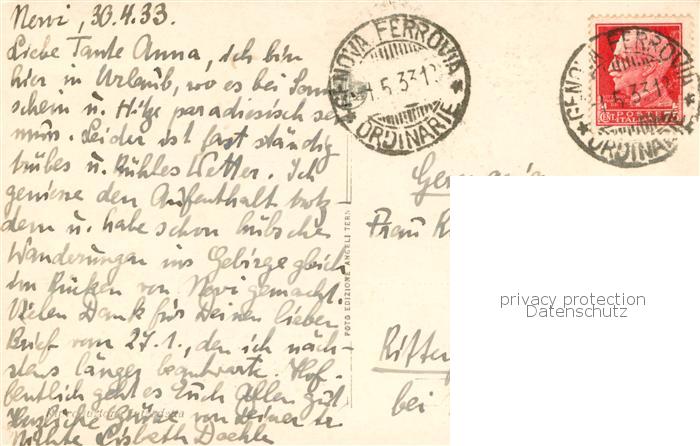 Nervi, 30.4.33.
Liebe Tante Anna, ich bin
hier in Urlaub, wo es bei Sonn
schein u. Hitze paradiesisch sein
muss. Leider ist fast ständig
trübes u. kühles Wetter. Ich
geniesse den Aufenthalt trotz
dem u. habe schon hübsche
Wanderungen ins Gebirge gleich
im Rücken von Nervi gemacht.
Vielen Dank für Deinen lieben
Brief vom 27.1., den ich näch-
stens länger beantworte. Hof-
fentlich geht es Euch Allen gut
Herzliche Grüsse von Deiner
Nichte Lisbeth
GENOVA FERROVIA
1.5.33.1
ORDINARIE
GENOVA FERROVIA
5.33.1
ORDINARIE
POSTE
ITALIANE
CENT. 75
Germania
Frau
Ritter
bei
FOTO EDIZIONE ANGELI TERNI
privacy protection
Datenschutz